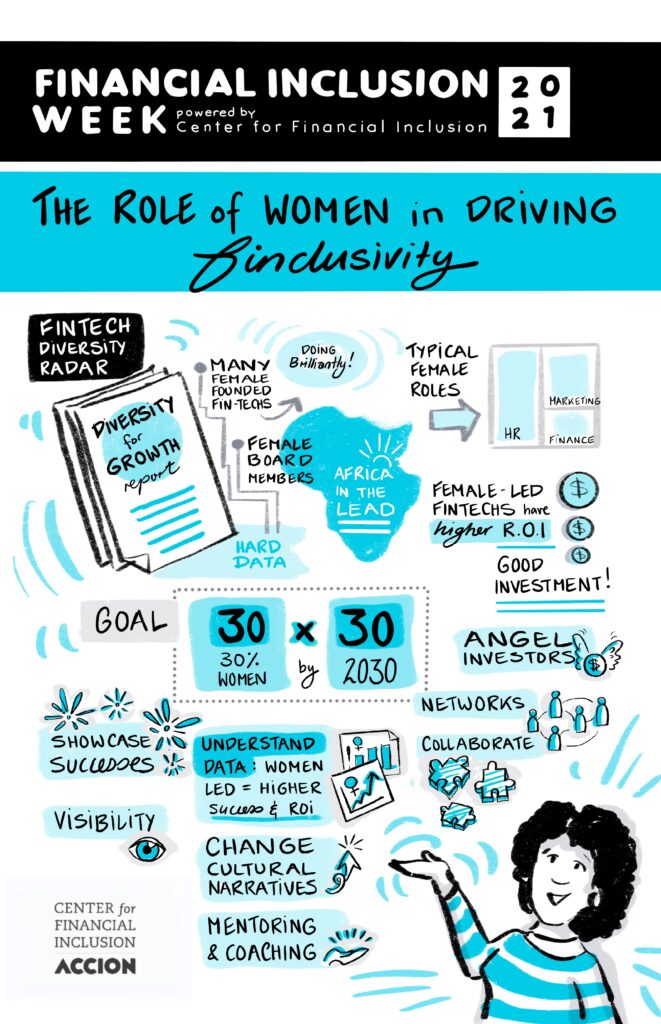 FINANCIAL INCLUSION
WEEK powered by Center for Financial Inclusion
20
21
THE ROLE of WOMEN in DRIVING
finclusivity
FINTECH
DIVERSITY
RADAR
DIVERSITY
for
GROWTH
report
MANY
FEMALE
FOUNDED
FIN-TECHS
DOING
Brilliantly!
FEMALE
BOARD
MEMBERS
HARD
DATA
AFRICA
IN THE
LEAD
TYPICAL
FEMALE
ROLES
HR
MARKETING
FINANCE
FEMALE-LED
FINTECHS have
higher R.O.I
GOOD
INVESTMENT!
$
$
$
GOAL
30 x 30
30% WOMEN by 2030
ANGEL
INVESTORS
$
NETWORKS
COLLABORATE
SHOWCASE
SUCCESSES
UNDERSTAND
DATA: WOMEN
LED = HIGHER
SUCCESS & ROI
VISIBILITY
CHANGE
CULTURAL
NARRATIVES
MENTORING
& COACHING
CENTER for
FINANCIAL
INCLUSION
ACCION